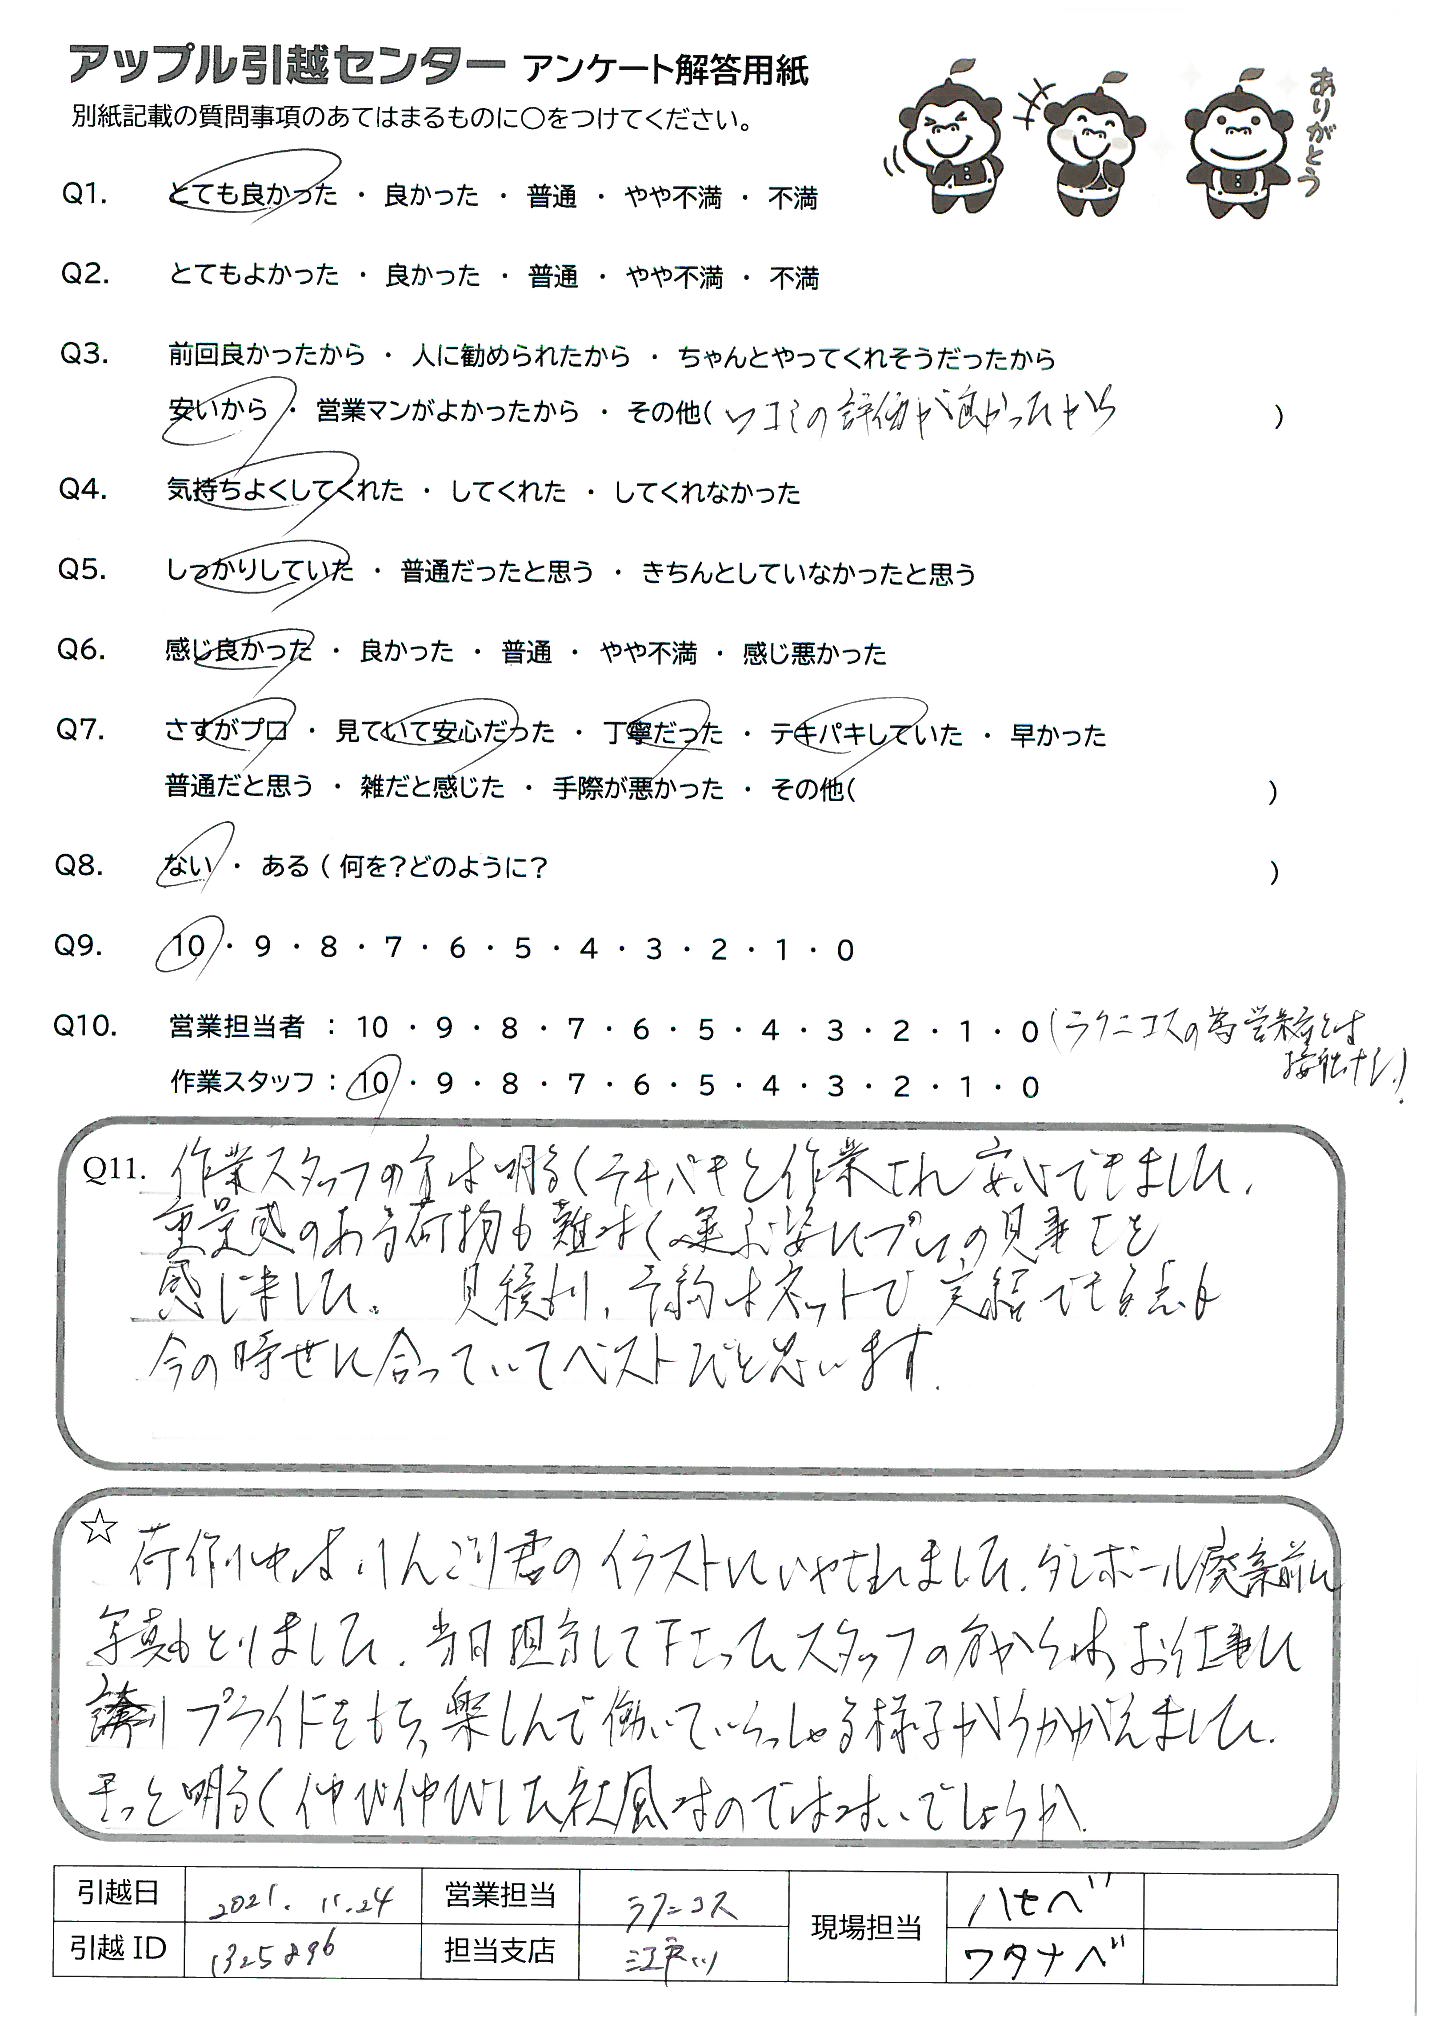 アップル引越センター アンケート解答用紙
別紙記載の質問事項のあてはまるものに○をつけてください。
ありがとう
Q1. とても良かった ・ 良かった ・ 普通 ・ やや不満 ・ 不満
Q2. とてもよかった ・ 良かった ・ 普通 ・ やや不満 ・ 不満
Q3. 前回良かったから ・ 人に勧められたから ・ ちゃんとやってくれそうだったから
安いから ・ 営業マンがよかったから ・ その他( 口コミの評価が良かったから )
Q4. 気持ちよくしてくれた ・ してくれた ・ してくれなかった
Q5. しっかりしていた ・ 普通だったと思う ・ きちんとしていなかったと思う
Q6. 感じ良かった ・ 良かった ・ 普通 ・ やや不満 ・ 感じ悪かった
Q7. さすがプロ ・ 見ていて安心だった ・ 丁寧だった ・ テキパキしていた ・ 早かった
普通だと思う ・ 雑だと感じた ・ 手際が悪かった ・ その他( )
Q8. ない ・ ある ( 何を?どのように? )
Q9. 10 ・ 9 ・ 8 ・ 7 ・ 6 ・ 5 ・ 4 ・ 3 ・ 2 ・ 1 ・ 0
Q10. 営業担当者 : 10 ・ 9 ・ 8 ・ 7 ・ 6 ・ 5 ・ 4 ・ 3 ・ 2 ・ 1 ・ 0 (ラクニコスの為営業者とは
接触なし)
作業スタッフ : 10 ・ 9 ・ 8 ・ 7 ・ 6 ・ 5 ・ 4 ・ 3 ・ 2 ・ 1 ・ 0
Q11. 作業スタッフの方は明るくテキパキと作業され安心できました。
重量感のある荷物も難なく運ぶ姿にプロの見事さを
感じました。 見積り、予約はネットで完結できる点も
今の時世に合っていてベストだと思います。
☆ 荷作り中は、りんごり君のイラストにいやされました。ダンボール廃棄前に
写真もとりました。当日担当して下さったスタッフの方からは、お仕事に
誇り プライドをもち、楽しんで働いていらっしゃる様子がうかがえました。
きっと明るく伸び伸びした社風なのではないでしょうか。
引越日 2021.11.24 営業担当 ラクニコス 現場担当 ハセベ
引越ID 1325896 担当支店 江戸川 ワタナベ